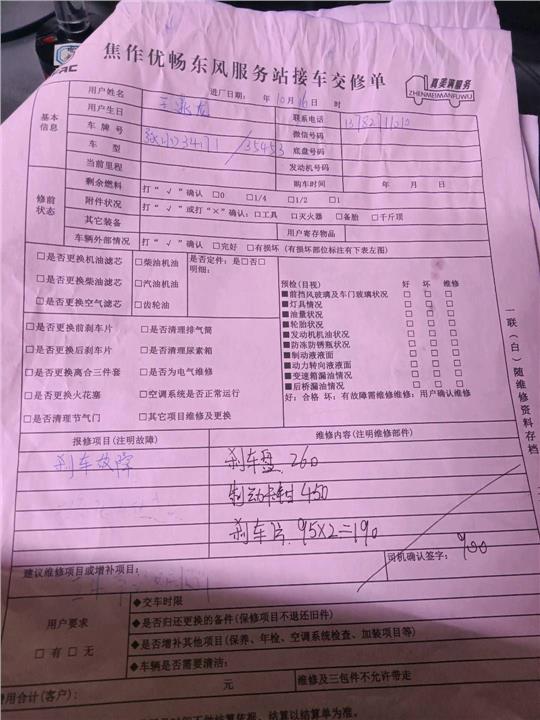 焦作优畅东风服务站接车交修单
真美满服务
ZHENMEIMANFUWU
进厂日期： 年10月16日 时
基本信息
用户姓名
联系电话
用户生日
微信号码
车牌号
底盘号码
车型
发动机号码
当前里程
购车时间 年 月 日
修前状态
剩余燃料 打“√”确认 □0 □1/4 □1/2 □1
附件状况 打“√”或打“×”确认：□工具 □灭火器 □备胎 □千斤顶
其它装备 用户寄存物品
车辆外部情况 打“√”确认 □完好 □有损坏（有损坏部位标注有下表左图）
□是否更换机油滤芯 □柴油机油 是否定件：是□否□
明细：
□是否更换柴油滤芯 □汽油机油
□是否更换空气滤芯 □齿轮油
□是否更换前刹车片 □是否清理排气筒
□是否更换后刹车片 □是否清理尿素箱
□是否更换离合三件套 □是否为电气维修
□是否更换火花塞 □空调系统是否正常运行
□是否清理节气门 □其它项目维修及更换
预检(目视) 好 坏 维修
■前挡风玻璃及车门玻璃状况 □ □ □
■灯具情况 □ □ □
■油量状况 □ □ □
■轮胎状况 □ □ □
■发动机机油状况 □ □ □
■防冻防锈瓶状况 □ □ □
■制动液液面 □ □ □
■动力转向液液面 □ □ □
■变速箱漏油情况 □ □ □
■后桥漏油情况 □ □ □
好：合格 坏：有故障需维修维修：用户确认维修
一联（白）随维修资料存档
报修项目(注明故障) 维修内容(注明维修部件)
刹车故障 刹车盘 260
450
刹车片 95×2=190
建议维修项目或增补项目：
司机确认签字： 900
用户要求
□有□无
◆交车时限
◆是否归还更换的备件(保修项目不退还旧件)
◆是否增补其他项目(保养、年检、空调系统检查、加装项目等)
◆车辆是否需要清洁：
费用合计(客户)： 元 维修及三包件不允许带走
结算以结算单为准。